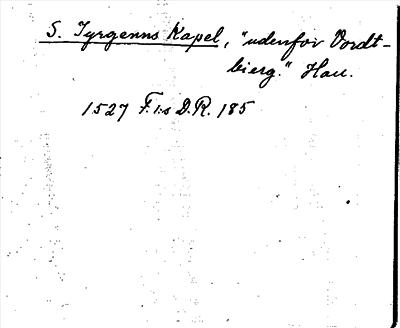 S. Jyrgenns Kapel, "udenfor Vordt-
bierg." Hau.
1527 F. I:s D. R. 185